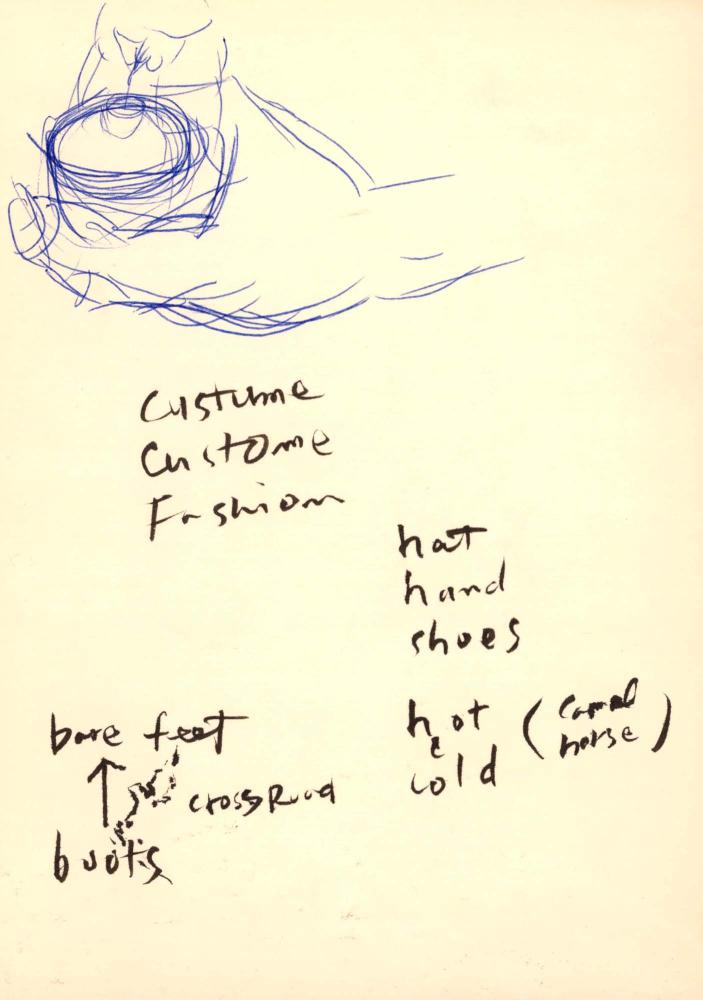 Custume
Custome
Fashion
hat
hand
shoes
hot (camel
& horse)
cold
bare feet
crossRoad
boots